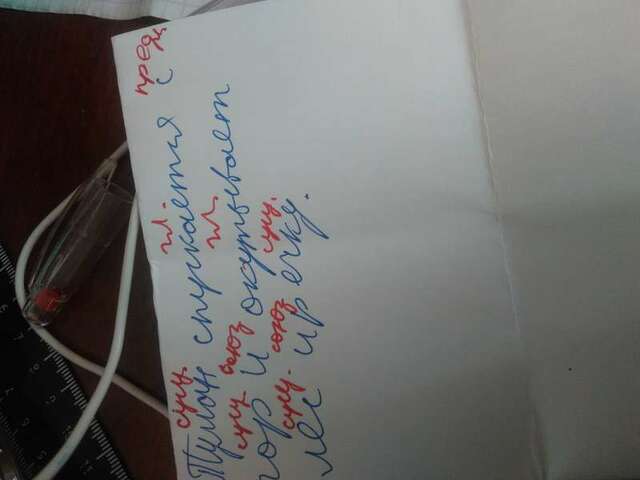 сущ. гл. пред.
Туман спускается с
сущ. союз гл.
гор и окутывает
сущ. союз сущ.
лес и речку.